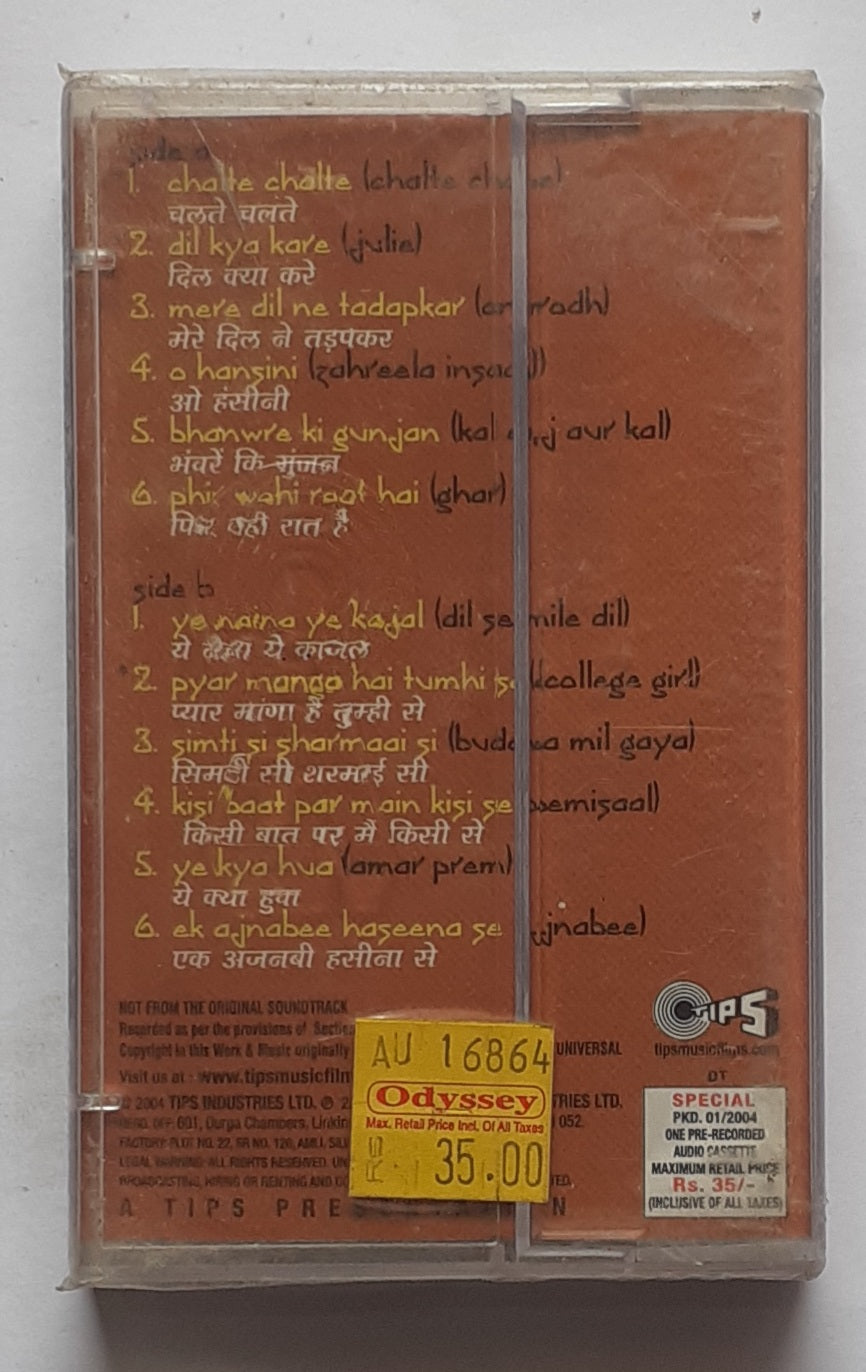 side a
1. chalte chalte (chalte chalte)
चलते चलते
2. dil kya kare (julie)
दिल क्या करे
3. mere dil ne tadapkar (anurodh)
मेरे दिल ने तड़पकर
4. o hansini (zahreela insaan)
ओ हंसीनी
5. bhanwre ki gunjan (kal aaj aur kal)
भंवरें कि गुंजन
6. phir wahi raat hai (ghar)
फिर वही रात है
side b
1. ye naina ye kajal (dil se mile dil)
ये नैना ये काजल
2. pyar manga hai tumhi se (college girl)
प्यार मांगा हैं तुम्ही से
3. simti si sharmaai si (buddha mil gaya)
सिमटी सी शरमाई सी
4. kisi baat par main kisi se (bemisaal)
किसी बात पर मैं किसी से
5. ye kya hua (amar prem)
ये क्या हुवा
6. ek ajnabee haseena se (ajnabee)
एक अजनबी हसीना से
NOT FROM THE ORIGINAL SOUNDTRACK
Recorded as per the provisions of
Copyright in this Work & Music originally UNIVERSAL
Visit us at : www.tipsmusicfilm
© 2004 TIPS INDUSTRIES LTD. ℗ TRIES LTD.
601, Durga Chambers, 052.
FACTORY: PLOT NO. 22,
LEGAL WARNING: ALL RIGHTS RESERVED.
BROADCASTING, HIRING OR RENTING AND
A TIPS PRESENTATION
TIPS
tipsmusicfilms.com
DT
SPECIAL
PKD. 01/2004
ONE PRE-RECORDED
AUDIO CASSETTE
MAXIMUM RETAIL PRICE
Rs. 35/-
(INCLUSIVE OF ALL TAXES)
AU 16864
Odyssey
Max. Retail Price Incl. Of All Taxes
RS 35.00